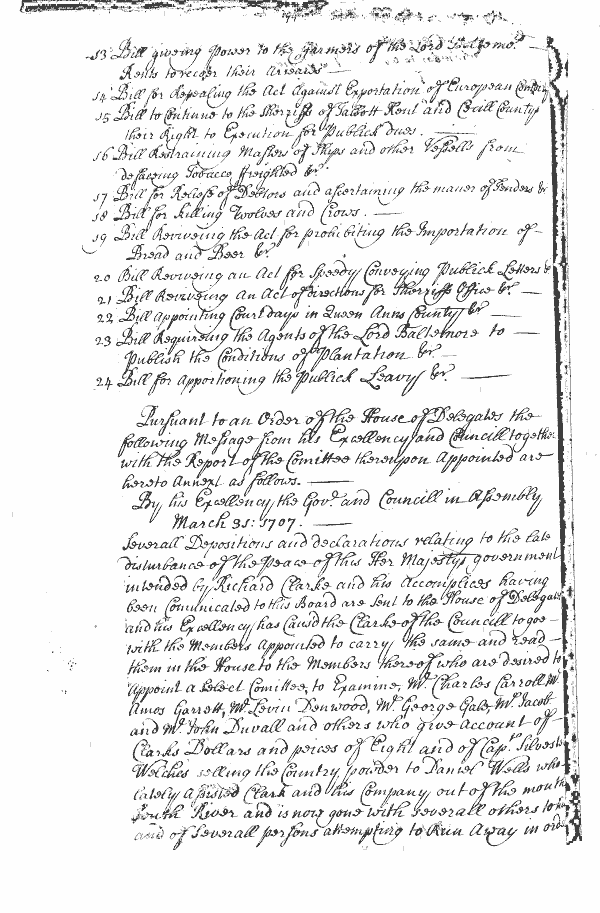 13 Bill giveing Power to the Farmers of the Lord
Rents to recover their Arrears —
14 Bill for Repealing the Act Against Exportation of European
15 Bill to Continue to the Sherriffs of Talbott Kent and Cecill County
their Right to Execution for Publick dues. —
16 Bill Restraining Masters of Ships and other Vessells from
defaceing Tobacco freighted &c.
17 Bill for Reliefe of Debtors and ascertaining the maner of Tenders &c
18 Bill for killing Woolves and Crows. —
19 Bill Reviveing the Act for prohibiting the Importation of —
Bread and Beer &c.
20 Bill Reviveing an Act for Speedy Conveying Publick Letters &c
21 Bill Reviveing an Act of directions for Sherriffs Office &c. —
22 Bill Appointing Court days in Queen Anns County &c —
23 Bill Requireing the Agents of the Lord Baltemore to —
Publish the Conditions of Plantation &c. —
24 Bill for Apportioning the Publick Leavy &c. —
Pursuant to an Order of the House of Delegates the
following Message from his Excellency and Councill together
with the Report of the Comittee thereupon Appointed are
hereto Annext as follows. —
By his Excellency the Govr. and Councill in Assembly
March 31: 1707. —
Severall Depositions and declarations relating to the late
disturbance of the Peace of this Her Majestys government
intended by Richard Clarke and his Accomplices having
been Comunicated to this Board are sent to the House of Delegates
and his Excellency has causd the Clarke of the Councill to goe —
with the Members Appointed to carry the same and read —
them in the House to the Members thereof who are desired to
Appoint a Select Comittee, to Examine, Mr. Charles Carroll Mr.
Amos Garrett, Mr. Levin Denwood, Mr. George Gale, Mr. Jacob
and Mr. John Duvall and others who give account of —
Clarks Dollars and peices of Eight and of Capt. Silvester
Welches selling the Country powder to Daniel Wells who
lately Assisted Clark and his Company out of the mouth
South River and is now gone with severall others to
and of Severall persons attempting to Run Away in order